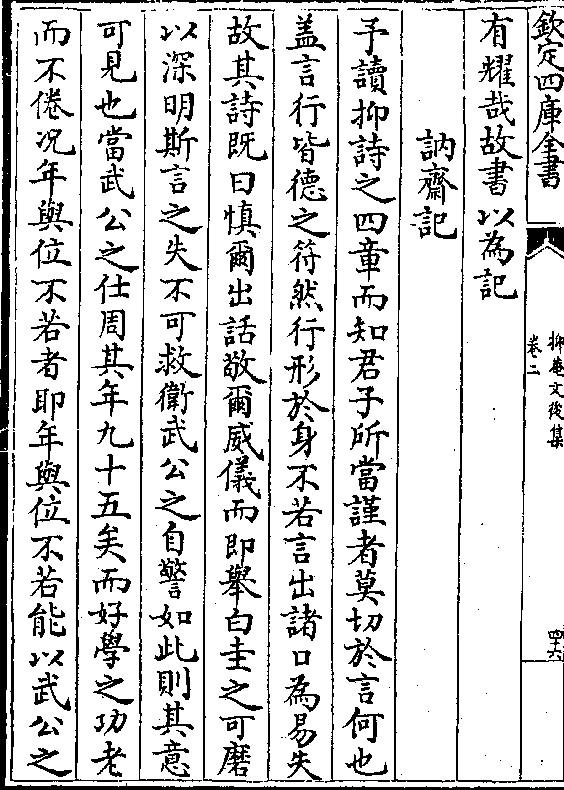 欽定四庫全書
抑菴文後集
卷二
四十六
有耀哉故書以為記
訥齋記
予讀抑詩之四章而知君子所當謹者莫切於言何也
盖言行皆德之符然行形於身不若言出諸口為易失
故其詩既曰慎爾出話敬爾威儀而即舉白圭之可磨
以深明斯言之失不可救衛武公之自警如此則其意
可見也當武公之仕周其年九十五矣而好學之功老
而不倦况年與位不若者即年與位不若能以武公之